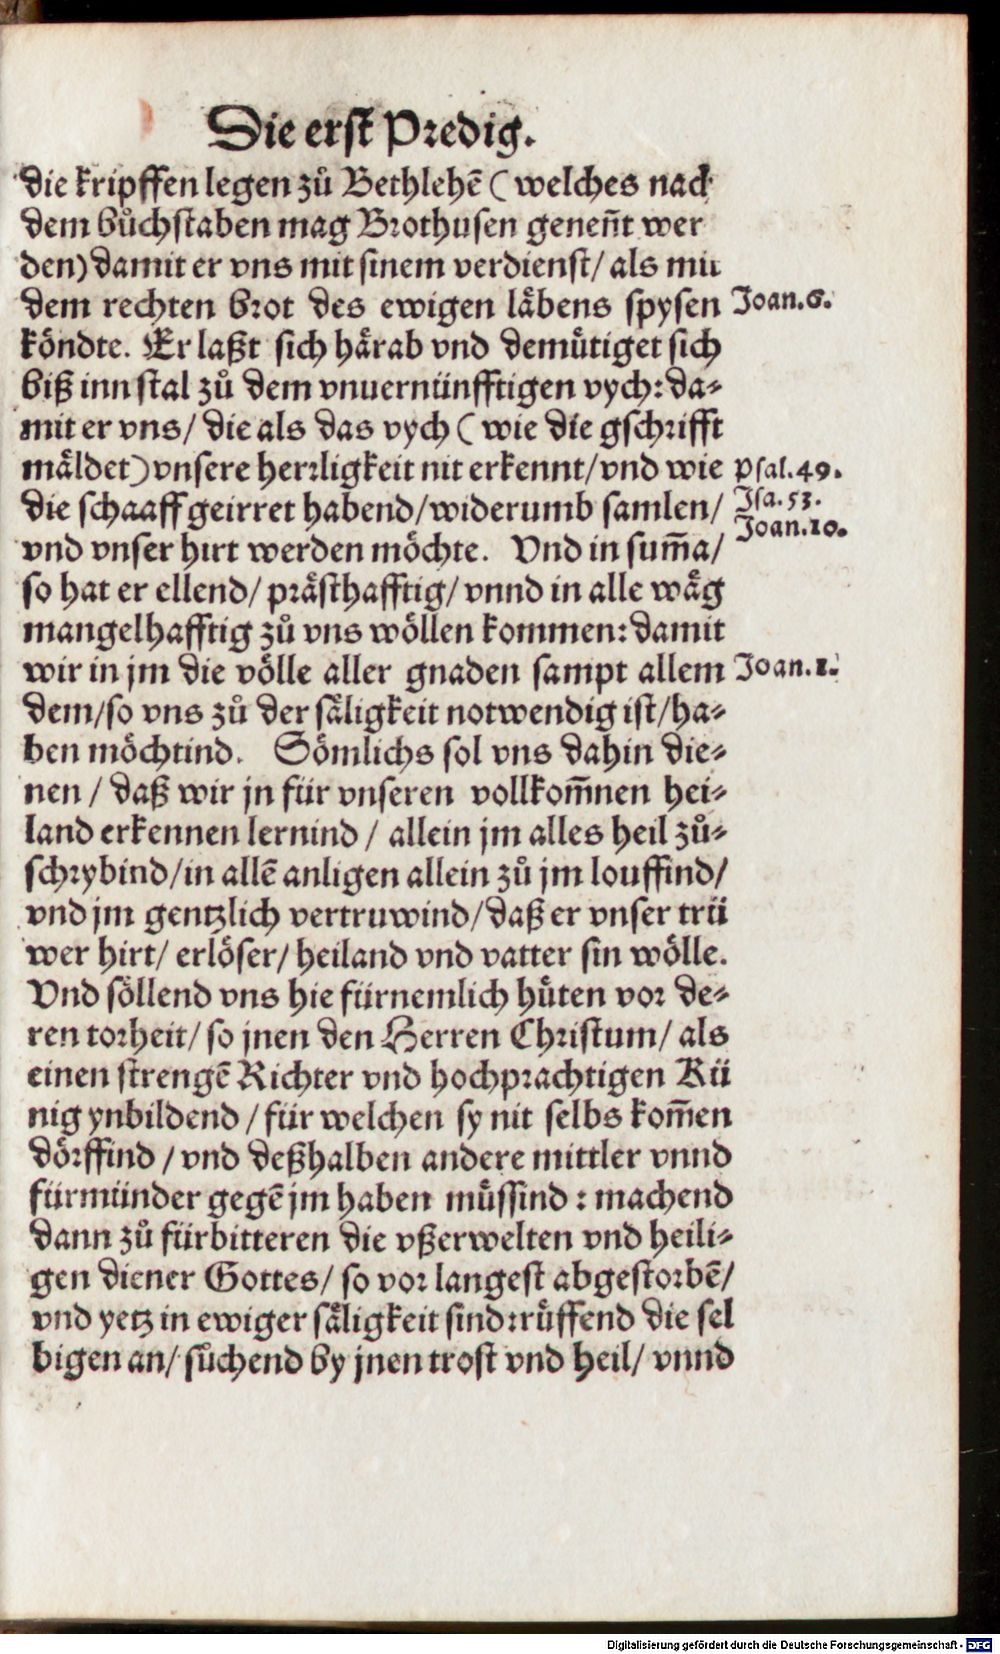 Die erst Predig.
die kripffen legen zů Bethlehē (welches nach
dem bůchstaben mag Brothusen geneñt wer
den) damit er vns mit sinem verdienst/ als mit
dem rechten brot des ewigen läbens spysen
Joan.6.
köndte. Er laßt sich härab vnd demütiget sich
biß inn stal zů dem vnuernünfftigen vych: da-
mit er vns/ die als das vych (wie die gschrifft
mäldet) vnsere herrligkeit nit erkennt/ vnd wie
Psal.49.
die schaaff geirret habend/ widerumb samlen/
Jsa.53.
Joan.10.
vnd vnser hirt werden möchte. Vnd in sum̄a/
so hat er ellend/ prästhafftig/ vnnd in alle wäg
mangelhafftig zů vns wöllen kommen: damit
wir in jm die völle aller gnaden sampt allem
Joan.1.
dem/ so vns zů der säligkeit notwendig ist/ ha-
ben möchtind. Sömlichs sol vns dahin die-
nen / daß wir jn für vnseren vollkom̄nen hei-
land erkennen lernind / allein jm alles heil zů-
schrybind/ in allē anligen allein zů jm louffind/
vnd jm gentzlich vertruwind/ daß er vnser trü
wer hirt/ erlöser/ heiland vnd vatter sin wölle.
Vnd söllend vns hie fürnemlich hüten vor de-
ren torheit/ so jnen den Herren Christum/ als
einen strengē Richter vnd hochprachtigen Kü
nig ynbildend / für welchen sy nit selbs kom̄en
dörffind / vnd deßhalben andere mittler vnnd
fürmünder gegē jm haben müssind : machend
dann zů fürbitteren die vßerwelten vnd heili-
gen diener Gottes/ so vor langest abgestorbē/
vnd yetz in ewiger säligkeit sind: rüffend die sel
bigen an/ sůchend by jnen trost vnd heil/ vnnd
Digitalisierung gefördert durch die Deutsche Forschungsgemeinschaft - DFG